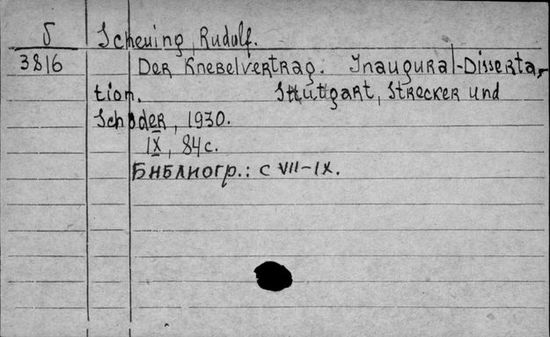 Б Scheuing, Rudolf.
3816 Der Knebelvertrag. Inaugural-Disserta-
tion. Stuttgart, Strecker und
Schöder, 1930.
IX, 84 с.
Библиогр.: с VII-IX.